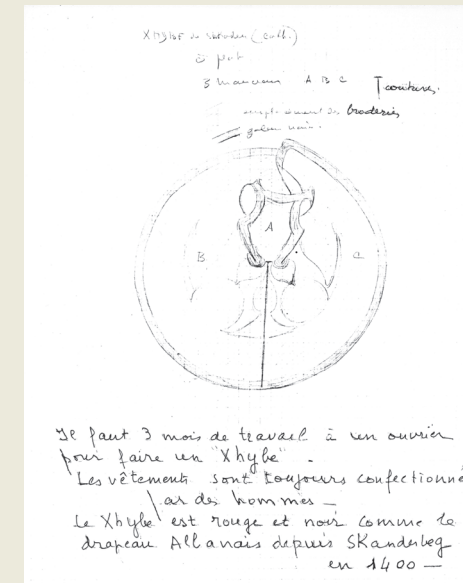 Xhybe de Shkoder (cath.)
à plat
3 morceaux A B C T coutures.
emplacement des broderies
galon noir.
A
B C
Il faut 3 mois de travail à un ouvrier
pour faire un "Xhybe" -
Les vêtements sont toujours confectionné
par des hommes -
Le Xhybe est rouge et noir comme le
drapeau Albanais depuis Skanderbeg
en 1400 -